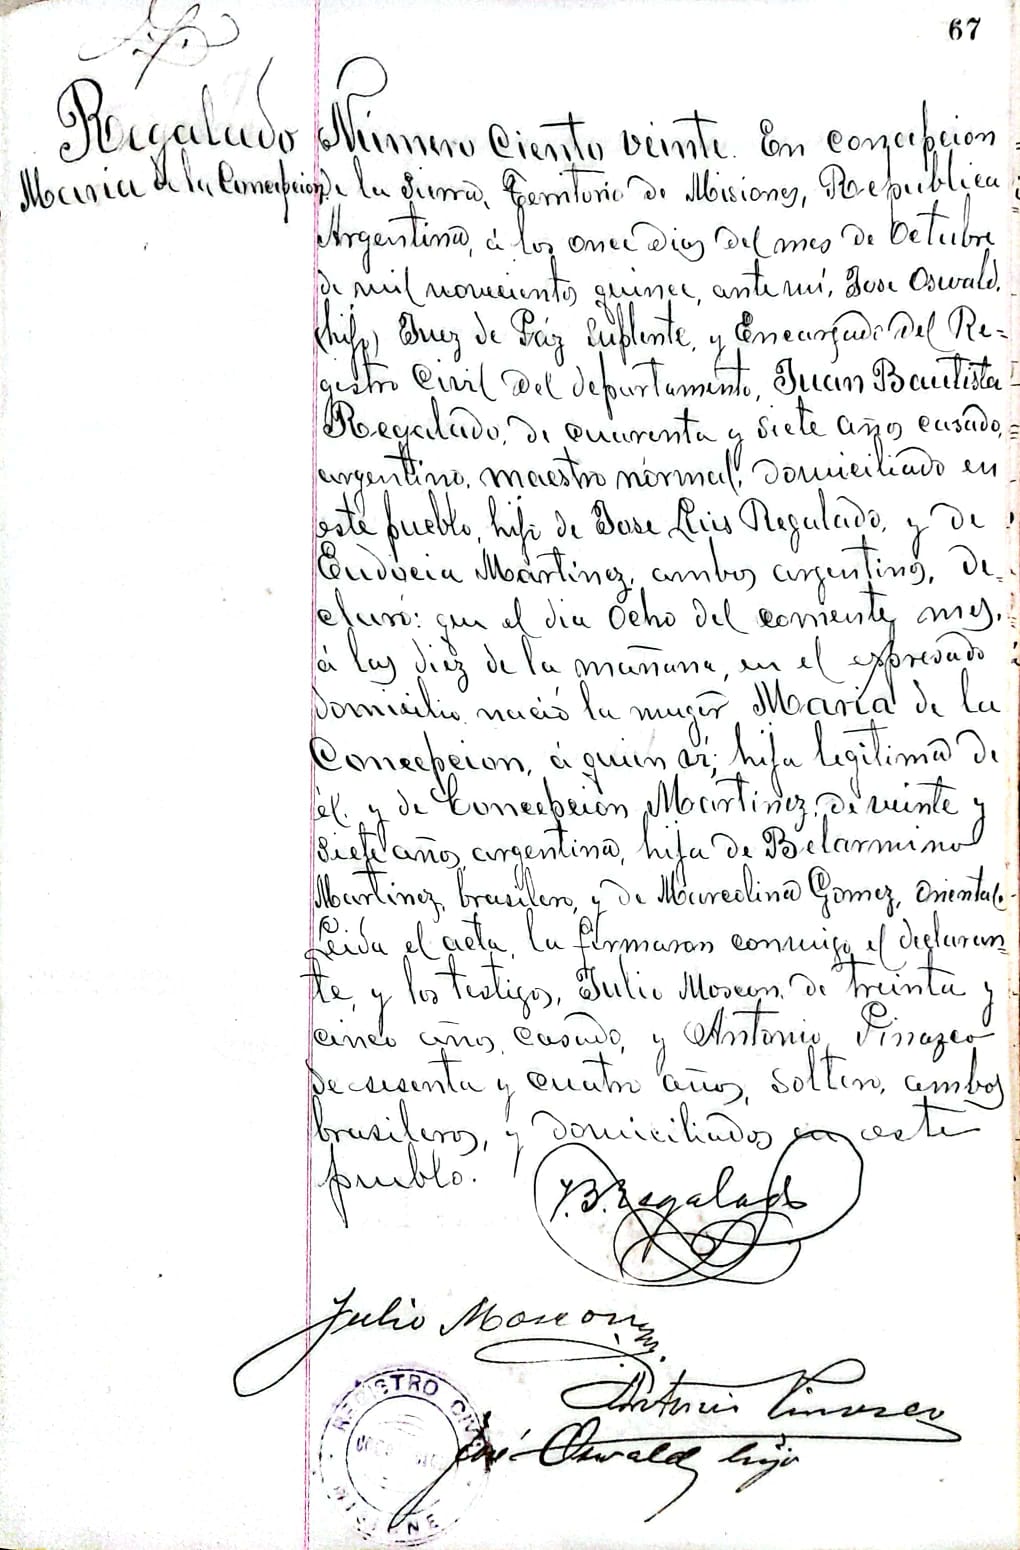 67
Regalado
Maria de la Concepcion
Número Ciento veinte. En Concepcion
de la Sierra, Territorio de Misiones, Republica
Argentina, á los once dias del mes de Octubre
de mil novecientos quince, ante mí, Jose Oswald,
(hijo) Juez de Páz Suplente, y Encargado del Re-
gistro Civil del departamento, Juan Bautista
Regalado, de cuarenta y siete años casado,
argentino, maestro normal, domiciliado en
este pueblo, hijo de Jose Luis Regalado, y de
Eudocia Martinez, ambos argentinos, de-
claró: que el dia ocho del corriente mes,
á las diez de la mañana, en el espresado
domicilio nació la muger Maria de la
Concepcion, á quien ví; hija legitima de
él, y de Concepcion Martinez, de veinte y
siete años, argentina, hija de Belarmino
Martinez, brasilero, y de Marcolina Gomez, oriental.
Leida el acta, la firmaron conmigo el declaran-
te, y los testigos, Julio Moscon, de treinta y
cinco años, casado, y Antonio Pinazco
de sesenta y cuatro años, soltero, ambos
brasileros, y domiciliados en este
pueblo.
J. B. Regalado
Julio Moscon
Antonio Pinasco
José Oswald hijo
REGISTRO CIVIL
MISIONES